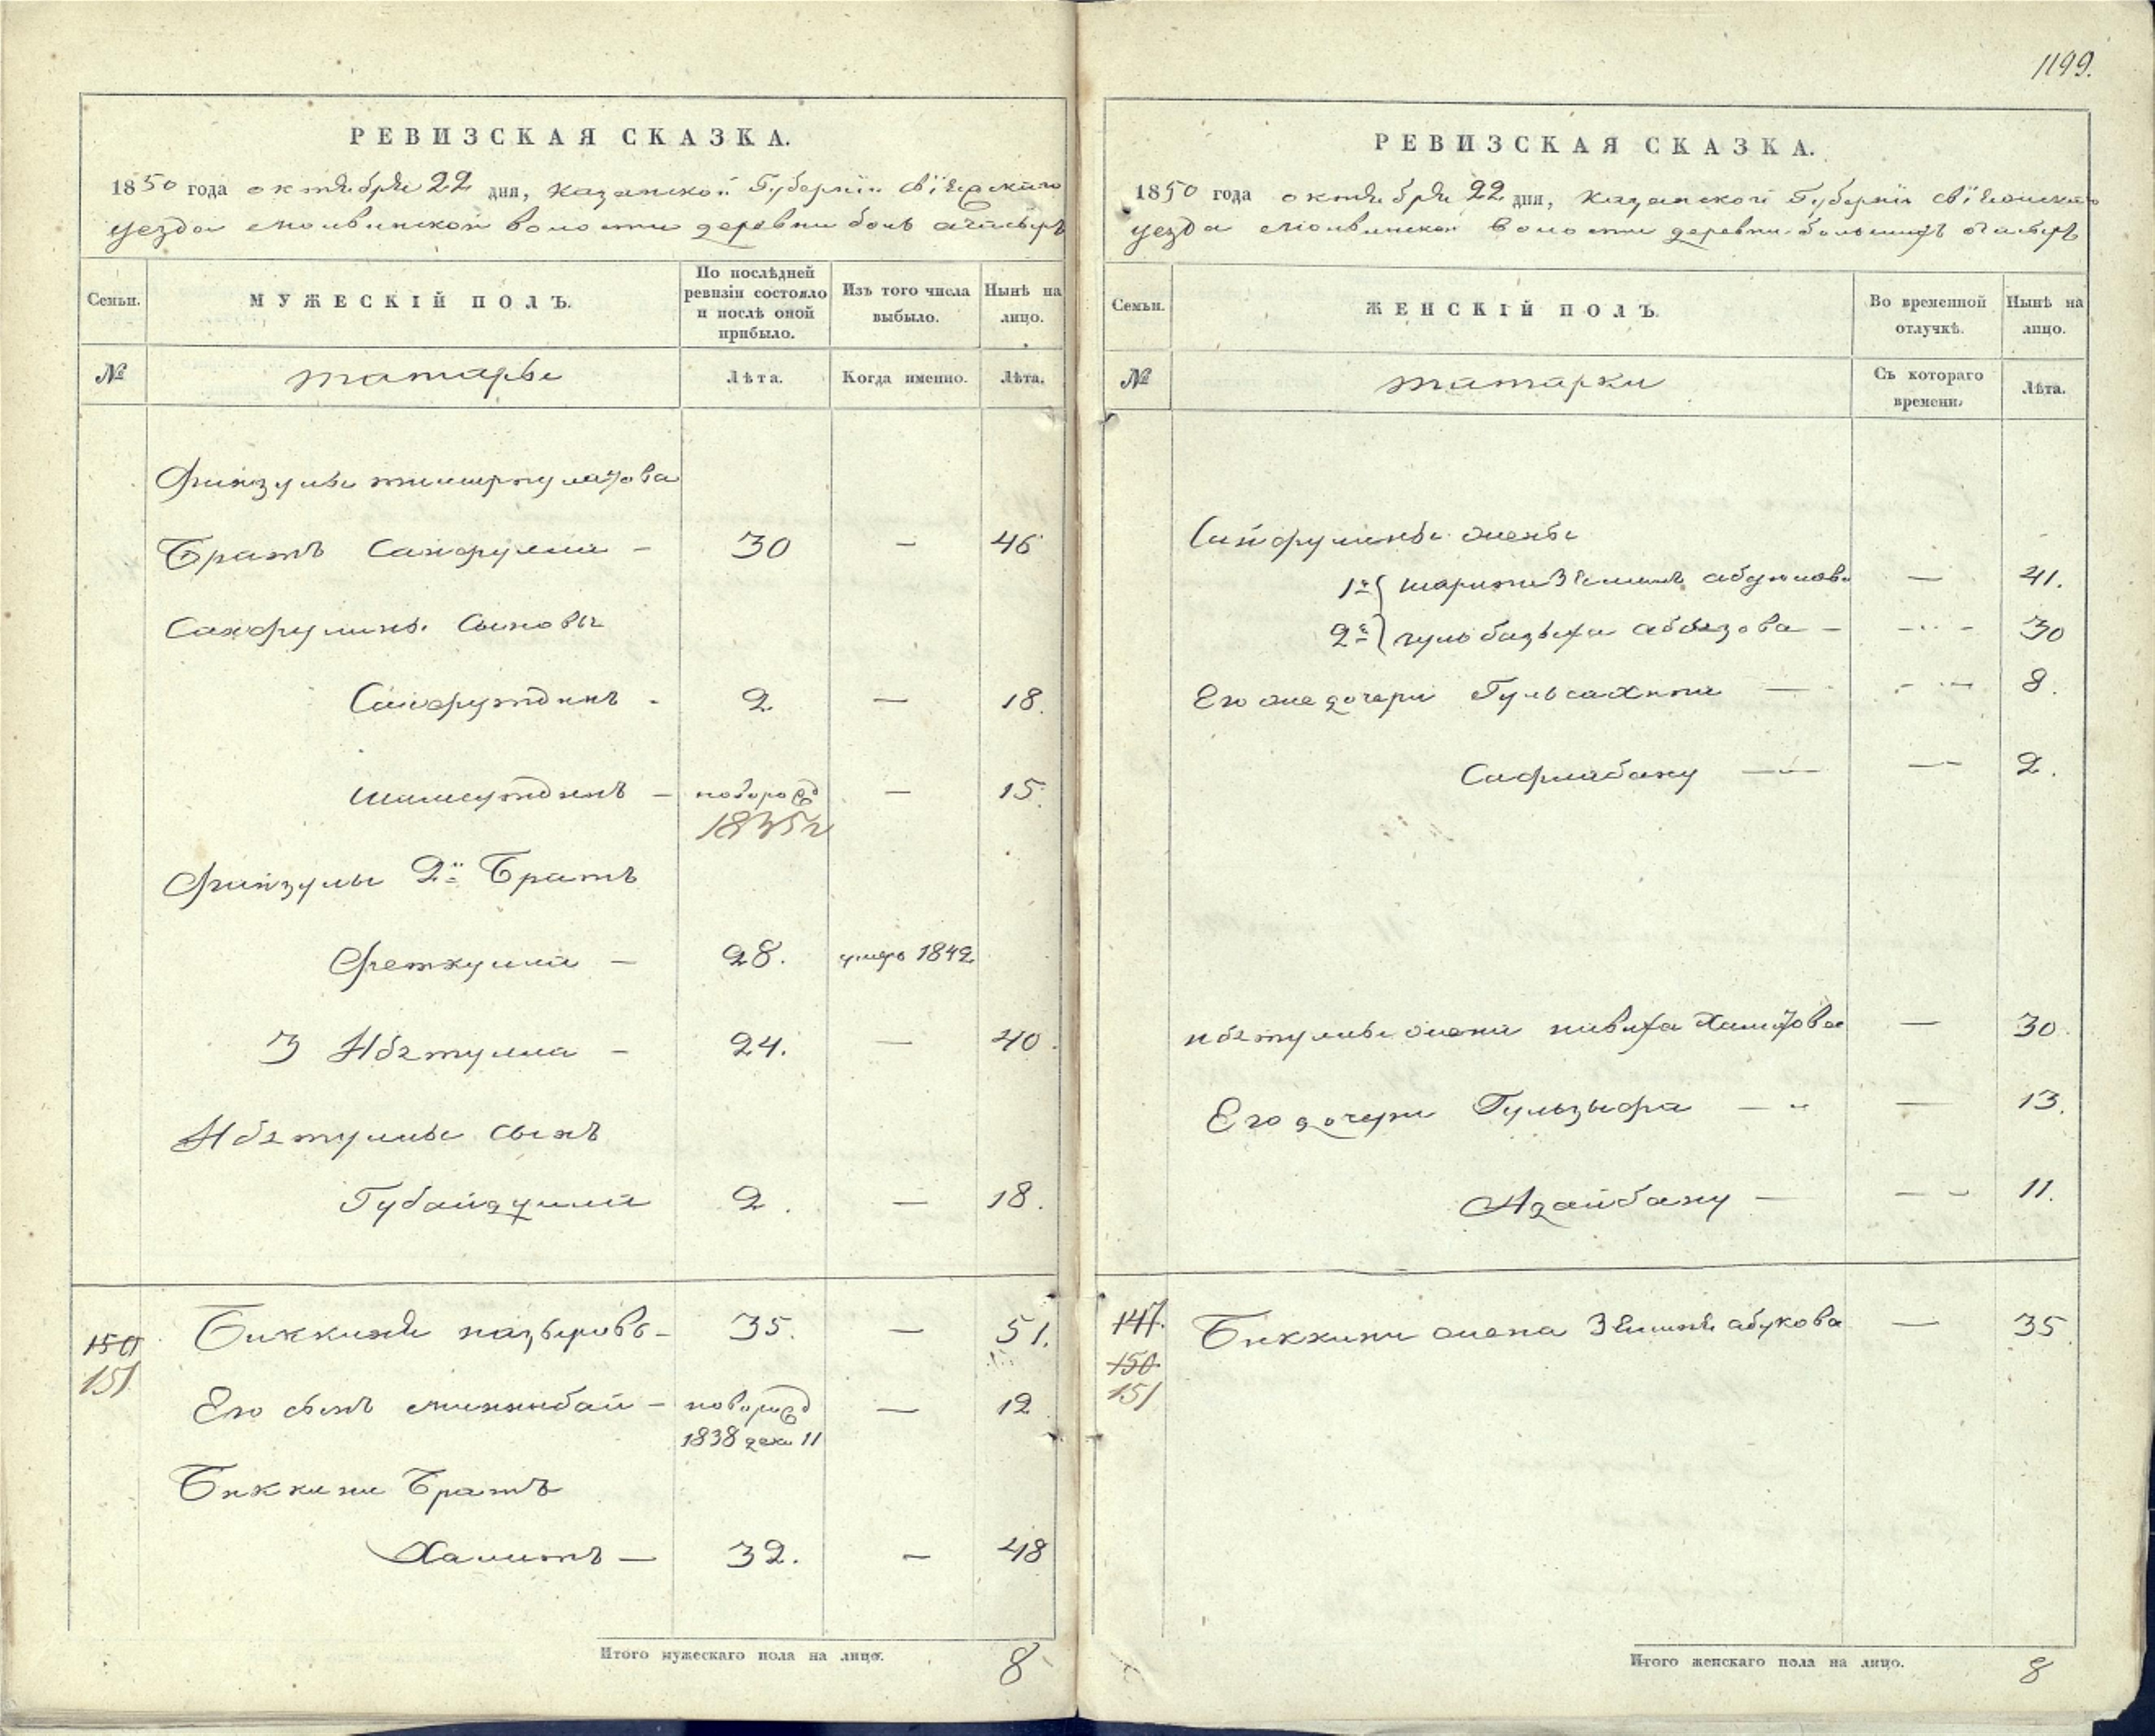 РЕВИЗСКАЯ СКАЗКА.
1850 года октября 22 дня, Казанской Губернiи Свiяжскаго
уезда молвинской волости деревни болъ ачасыръ
Семьи. МУЖЕСКIЙ ПОЛЪ. По послѣдней ревизiи состояло и послѣ оной прибыло. Изъ того числа выбыло. Нынѣ на лицо.
№ татары Лѣта. Когда именно. Лѣта.
Файзулы
Братъ Сайфулла – 30 – 46
Сайфулины Сыновья
Сайфутдинъ - 2 – 18.
шамсутдинъ – новорожд – 15.
1835 г
Файзулы 2й Братъ
Феткулла – 28. умеръ 1842
3 Ибетулла – 24. – 40.
Ибетуллы сынъ
Губайдулла 2. – 18.
150 Биккиня назыровъ – 35. – 51.
151
Его сынъ миннибай – новорожд – 12
1838 дека 11
Биккини Братъ
Хамитъ – 32. – 48
Итого мужескаго пола на лицо. 8
1199.
РЕВИЗСКАЯ СКАЗКА.
1850 года октября 22 дня, Казанской Губернiи Свiяжскаго
уезда молвинской волости деревни большихъ ачасыръ
Семьи. ЖЕНСКIЙ ПОЛЪ. Во временной отлучкѣ. Нынѣ на лицо.
№ татарки Съ котораго времени. Лѣта.
Сайфулины жены
1я – 41.
2я гульбазыха абызова – – 30
Его же дочери Гульсахипа – – 8.
Сафиабану – – 2.
ибетуллы жена хамитова – 30.
Его дочери Гульзыфа – – 13.
Агайбану – – 11.
147. Биккини жена абукова – 35
150
151
Итого женскаго пола на лицо. 8